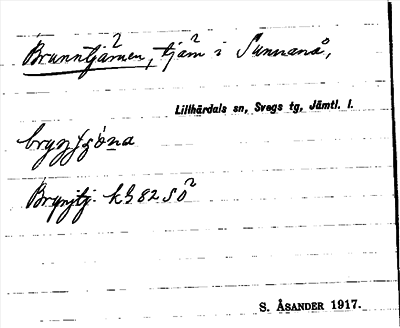 Brunntjärnen, tjärn i Sunnanå,
Lillhärdals sn, Svegs tg, Jämtl. l.
Brynjtj. kh 82 SO
S. ÅSANDER 1917.